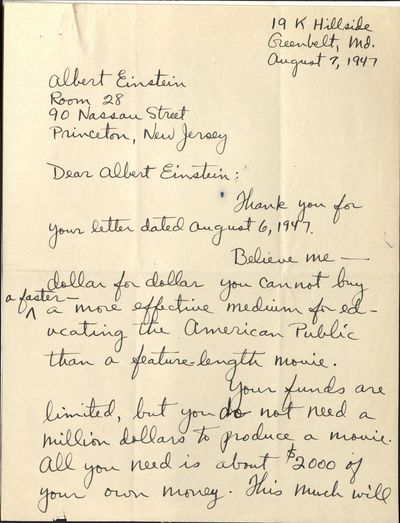 19 K Hillside
Greenbelt, Md.
August 7, 1947
Albert Einstein
Room 28
90 Nassau Street
Princeton, New Jersey
Dear Albert Einstein:
Thank you for
your letter dated August 6, 1947.
Believe me —
dollar for dollar you cannot buy
a faster —
^ a more effective medium for ed-
ucating the American Public
than a feature-length movie.
Your funds are
limited, but you do not need a
million dollars to produce a movie.
All you need is about $2000 of
your own money. This much will